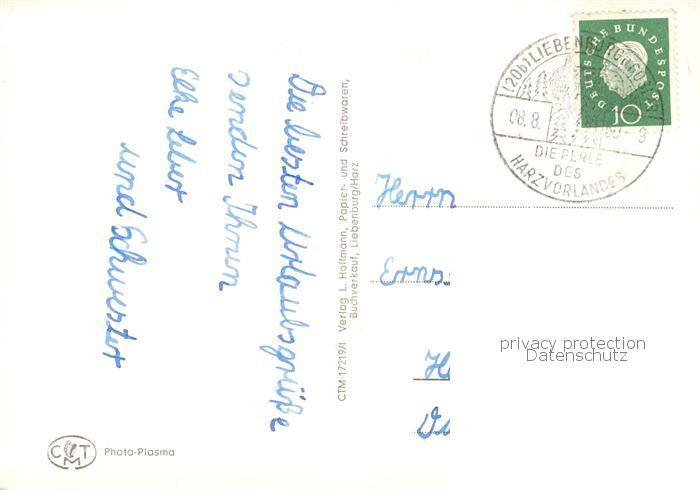 Die besten Urlaubsgrüße
senden Ihnen
Elke Leber
und Schwester
CTM 17219/I Verlag L. Hoffmann, Papier- und Schreibwaren,
Buchverkauf, Liebenburg/Harz
DEUTSCHE BUNDESPOST
10
(20b) LIEBENBURG
08.8.
-9
DIE PERLE
DES
HARZVORLANDES
Herrn
Erns
privacy protection
Datenschutz
CTM
Photo-Plasma